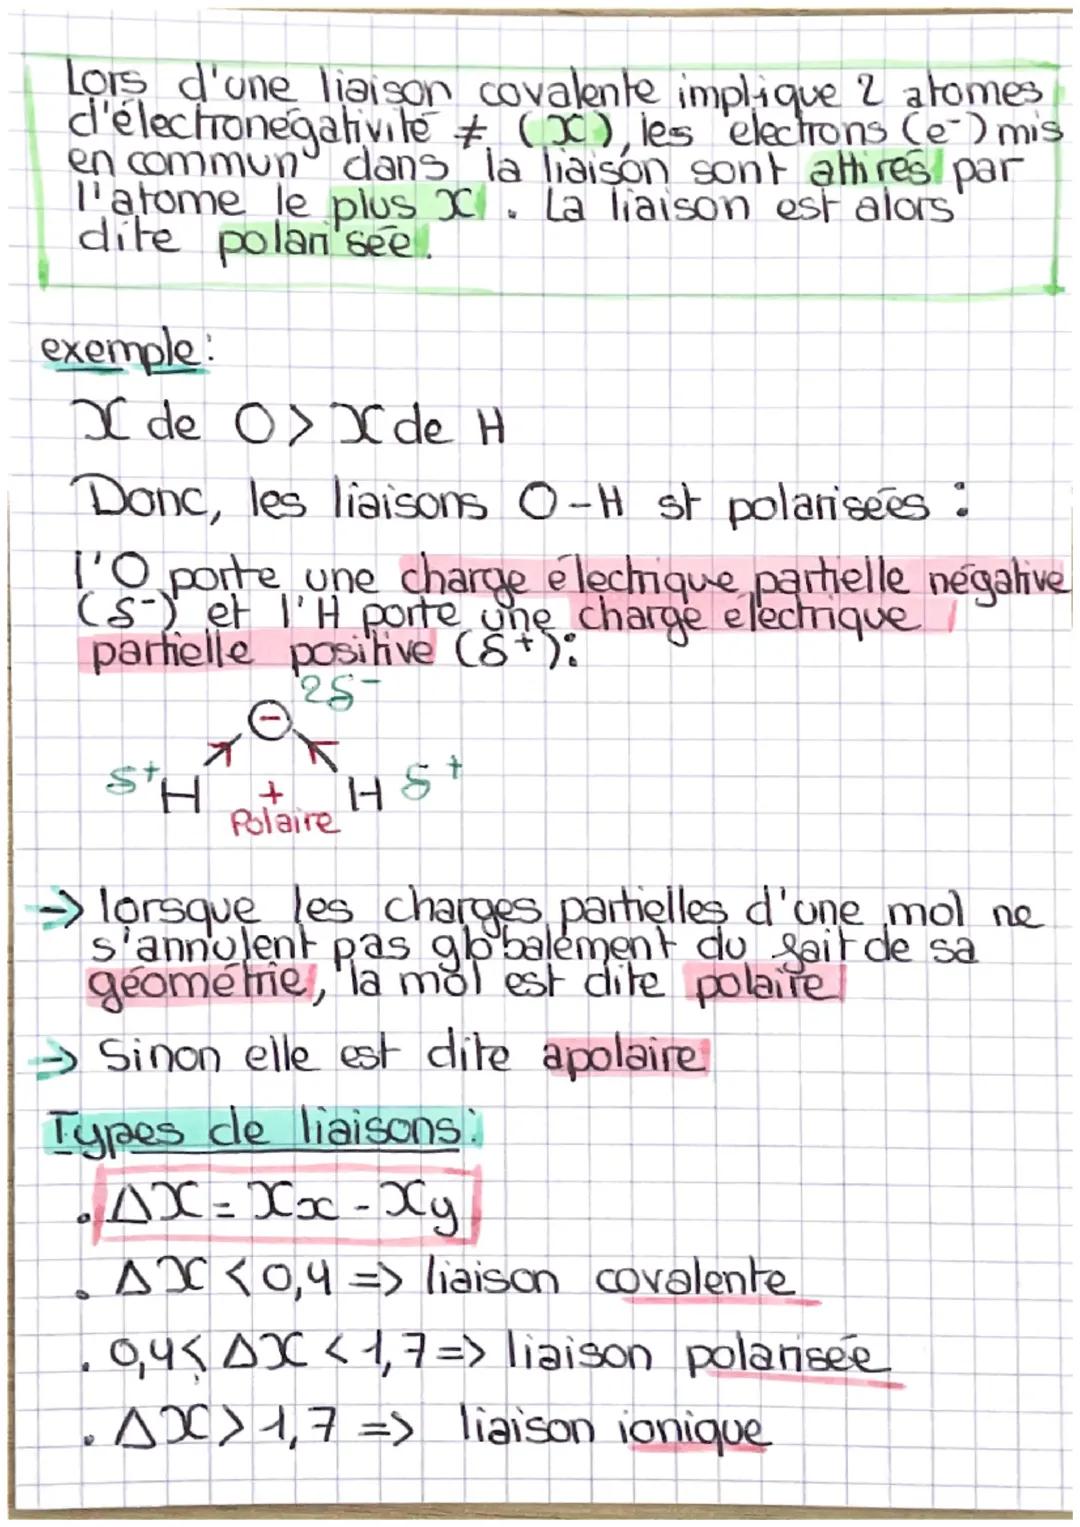 Lors d'une liaison covalente implique 2 atomes
d'électronégativité ≠ (χ), les electrons (e⁻) mis
en commun dans la liaison sont attirés par
l'atome le plus χ. La liaison est alors
dite polarisée.
exemple:
χ de O > χ de H
Donc, les liaisons O-H st polarisées :
l'O porte une charge électrique partielle négative
(δ⁻) et l'H porte une charge electrique
partielle positive (δ⁺):
2δ⁻
⊖
δ⁺H + H δ⁺
Polaire
→ lorsque les charges partielles d'une mol ne
s'annulent pas globalement du fait de sa
géométrie, la mol est dite polaire
→ Sinon elle est dite apolaire
Types de liaisons:
. Δχ = χx - χy
. Δχ < 0,4 => liaison covalente
. 0,4 ≤ Δχ < 1,7 => liaison polarisée
. Δχ > 1,7 => liaison ionique